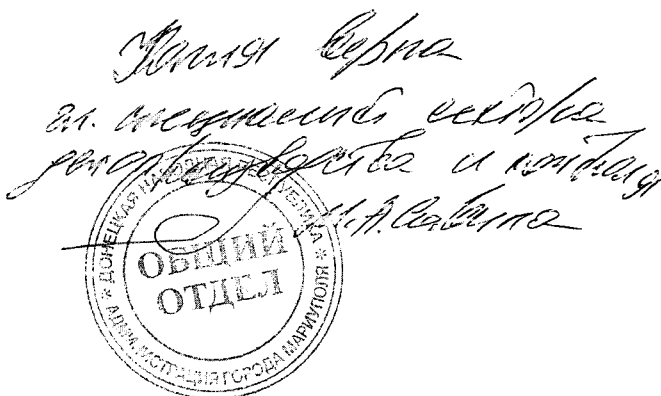 Копия верна
гл. специалист сектора
делопроизводства и контроля
И.А. Савина
* ДОНЕЦКАЯ НАРОДНАЯ РЕСПУБЛИКА *
АДМИНИСТРАЦИЯ ГОРОДА МАРИУПОЛЯ
ОБЩИЙ
ОТДЕЛ